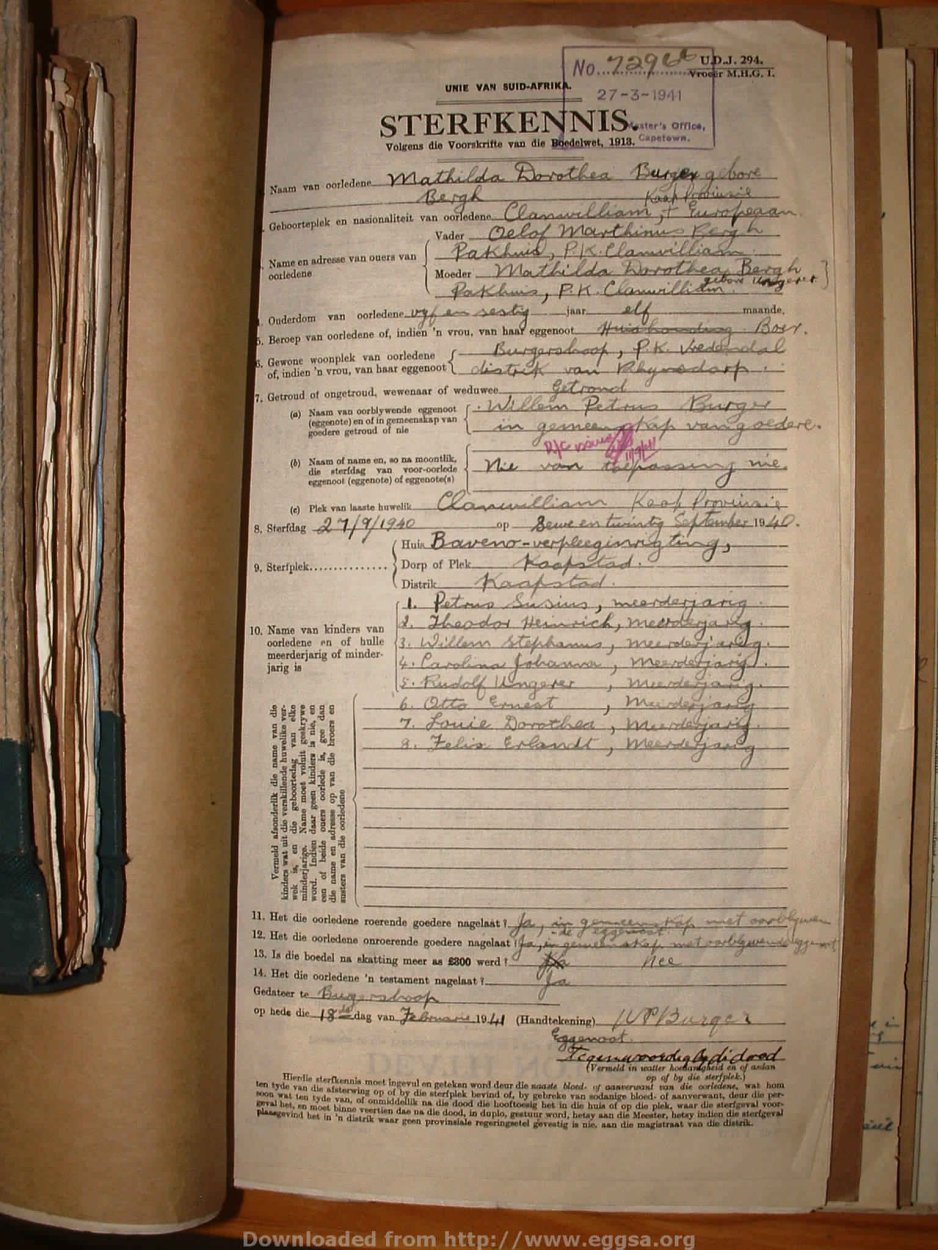 No. 72966 U.D.J. 294.
Vroeër M.H.G. 1.
UNIE VAN SUID-AFRIKA.
27-3-1941
STERFKENNIS.
Master's Office,
Capetown.
Volgens die Voorskrifte van die Boedelwet, 1913.
Naam van oorledene Mathilda Dorothea Burger gebore
Bergh Kaap Provinsie
Geboorteplek en nasionaliteit van oorledene Clanwilliam, + Europeaan
Vader Oelof Marthinus Bergh
Name en adresse van ouers van oorledene
Pakhuis, P.K. Clanwilliam
Moeder Mathilda Dorothea Bergh
gebore Ungerer
Pakhuis, P.K. Clanwilliam
Ouderdom van oorledene vyf en sestig jaar elf maande.
5. Beroep van oorledene of, indien 'n vrou, van haar eggenoot Huishouding Boer.
6. Gewone woonplek van oorledene of, indien 'n vrou, van haar eggenoot
Burgershoop, P.K. Vredendal
distrik van Rhynsdorp
7. Getroud of ongetroud, wewenaar of weduwee Getroud
(a) Naam van oorblywende eggenoot (eggenote) en of in gemeenskap van goedere getroud of nie
Willem Petrus Burger
in gemeenskap van goedere.
(b) Naam of name en, so na moontlik, die sterfdag van voor-oorlede eggenoot (eggenote) of eggenote(s)
Nie van toepassing nie
(c) Plek van laaste huwelik Clanwilliam Kaap Provinsie
8. Sterfdag 27/9/1940 op Sewe en twintig September 1940.
Huis Baveno-verpleeginrigting,
9. Sterfplek Dorp of Plek Kaapstad.
Distrik Kaapstad.
10. Name van kinders van oorledene en of hulle meerderjarig of minderjarig is
1. Petrus Susius, meerderjarig.
2. Theodor Heinrich, meerderjarig.
3. Willem Stephanus, meerderjarig.
4. Carolina Johanna, meerderjarig.
5. Rudolf Ungerer, meerderjarig.
6. Otto Ernest, meerderjarig
7. Louie Dorothea, meerderjarig.
8. Felix Erlandt, meerderjarig
Vermeld afsonderlik die name van die
kinders wat uit die verskillende huwelike ver-
wek is, en die geboortedag van elke
minderjarige. Name moet voluit geskrywe
word. Indien daar geen kinders is nie, en
een of beide ouers oorlede is, gee dan
die name en adresse op van die broers en
susters van die oorledene
11. Het die oorledene roerende goedere nagelaat? Ja, in gemeenskap met oorblywende eggenoot
12. Het die oorledene onroerende goedere nagelaat? Ja, in gemeenskap met oorblywende eggenoot
13. Is die boedel na skatting meer as £300 werd? Nee
14. Het die oorledene 'n testament nagelaat? Ja
Gedateer te Burgershoop
op hede die 18de dag van Februarie 1941 (Handtekening) W P Burger
Eggenoot.
Teenwoordig by di dood
(Vermeld in watter hoedanigheid en of aldan
op of by die sterfplek.)
Hierdie sterfkennis moet ingevul en geteken word deur die naaste bloed- of aanverwant van die oorledene, wat hom
ten tyde van die afsterwing op of by die sterfplek bevind of, by gebreke van sodanige bloed- of aanverwant, deur die per-
soon wat ten tyde van, of onmiddellik na die dood die hooftoesig het in die huis of op die plek, waar die sterfgeval voor-
geval het, en moet binne veertien dae na die dood, in duplo, gestuur word, hetsy aan die Meester, hetsy indien die sterfgeval
plaasgevind het in 'n distrik waar geen provinsiale regeringsetel gevestig is nie, aan die magistraat van die distrik.
Downloaded from http://www.eggsa.org